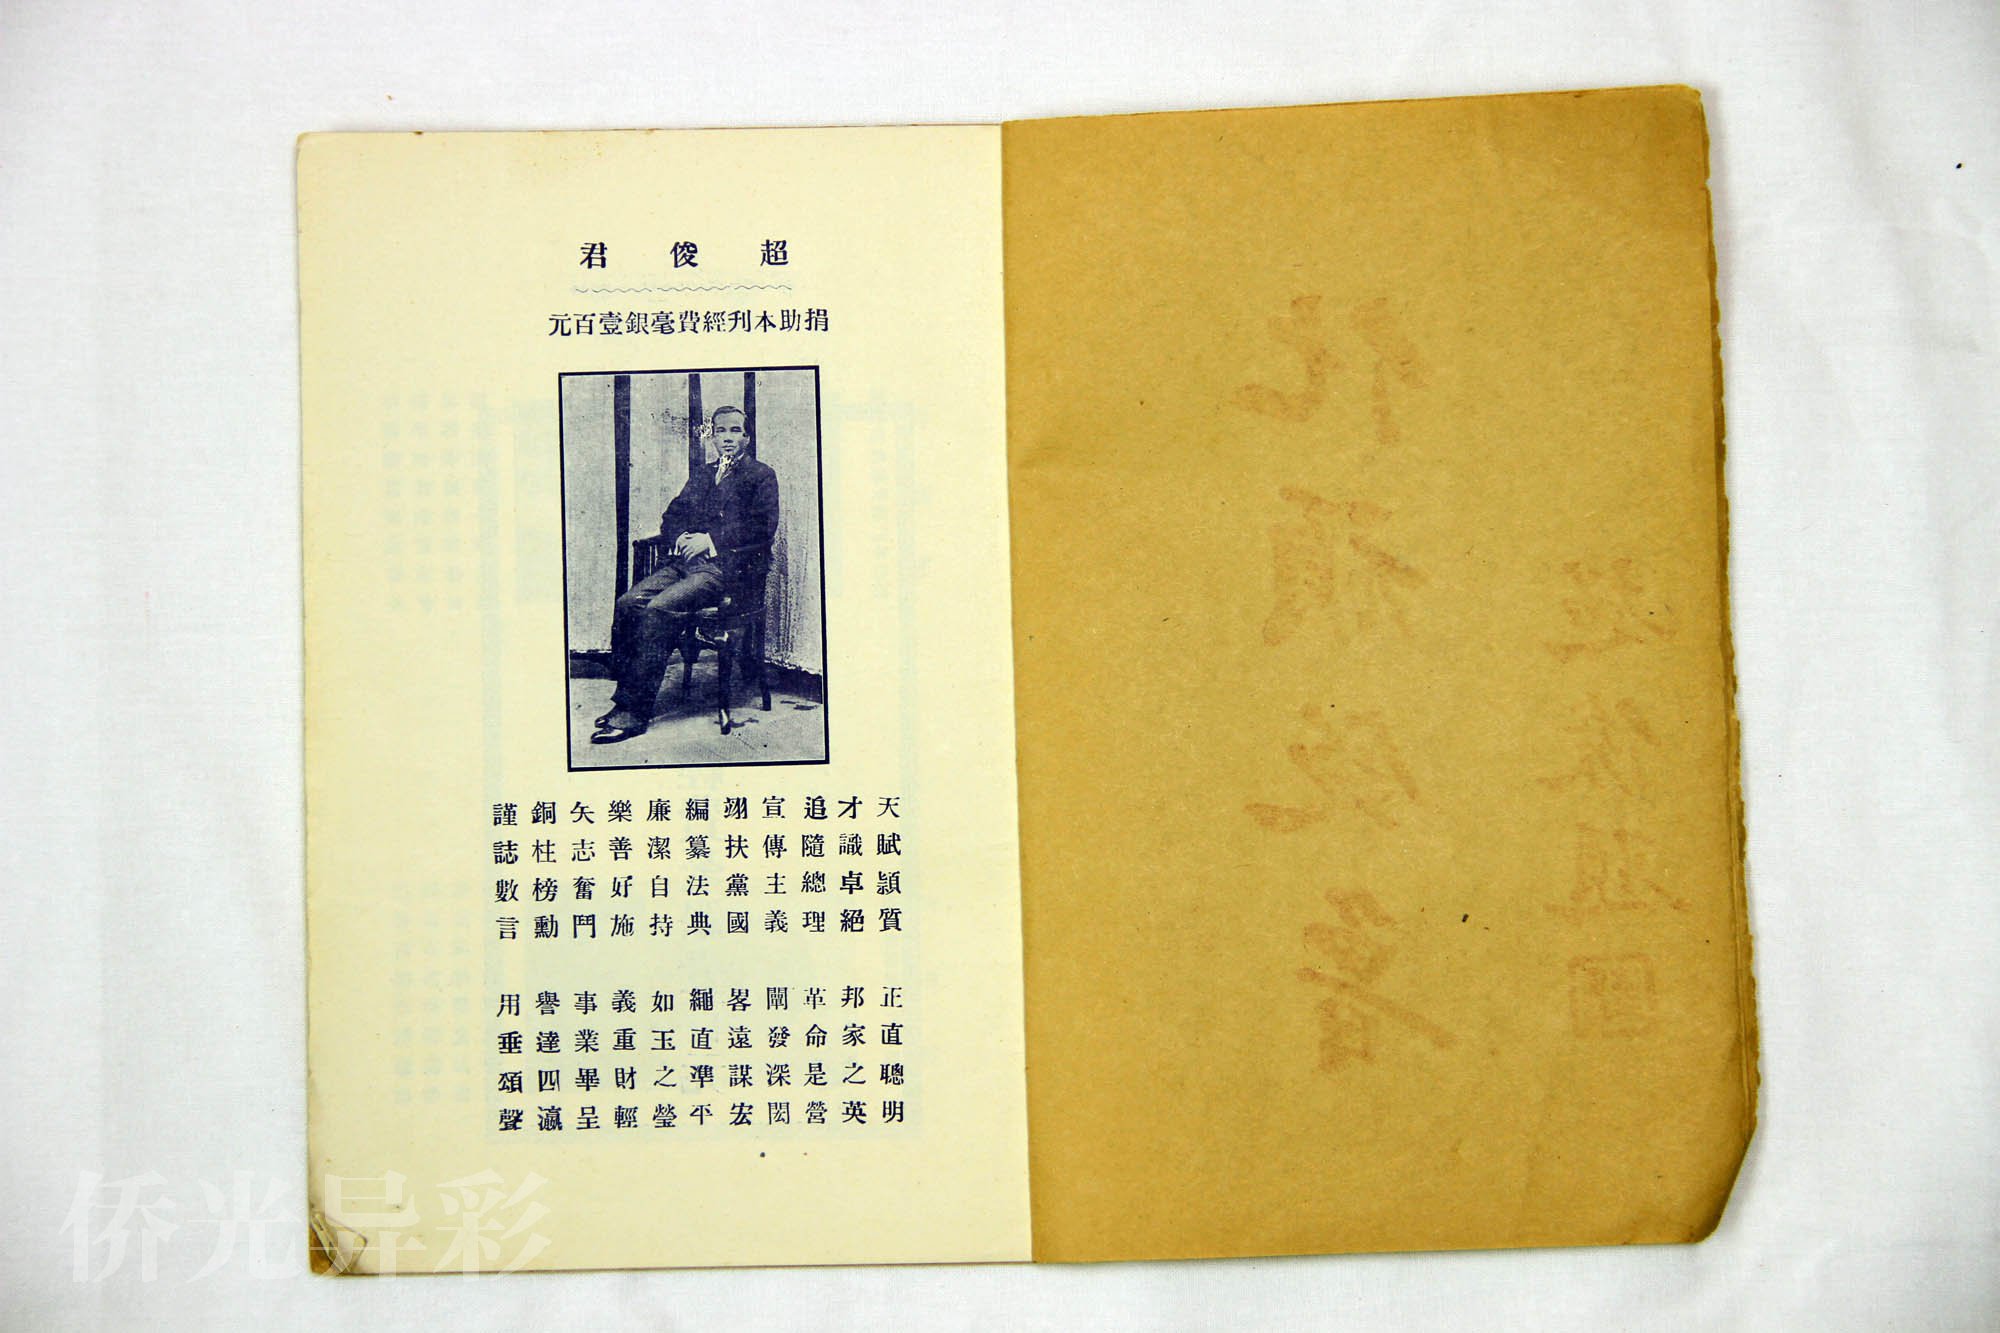 超俊君
捐助本刊經費毫銀壹百元
天賦穎質 正直聰明
才識卓絕 邦家之英
追隨總理 革命是營
宣傳主義 闡發深閎
翊扶黨國 畧遠謀宏
編纂法典 繩直準平
廉潔自持 如玉之瑩
樂善好施 義重財輕
矢志奮鬥 事業畢呈
銅柱榜勳 譽達四瀛
謹誌數言 用垂頌聲
侨光异彩